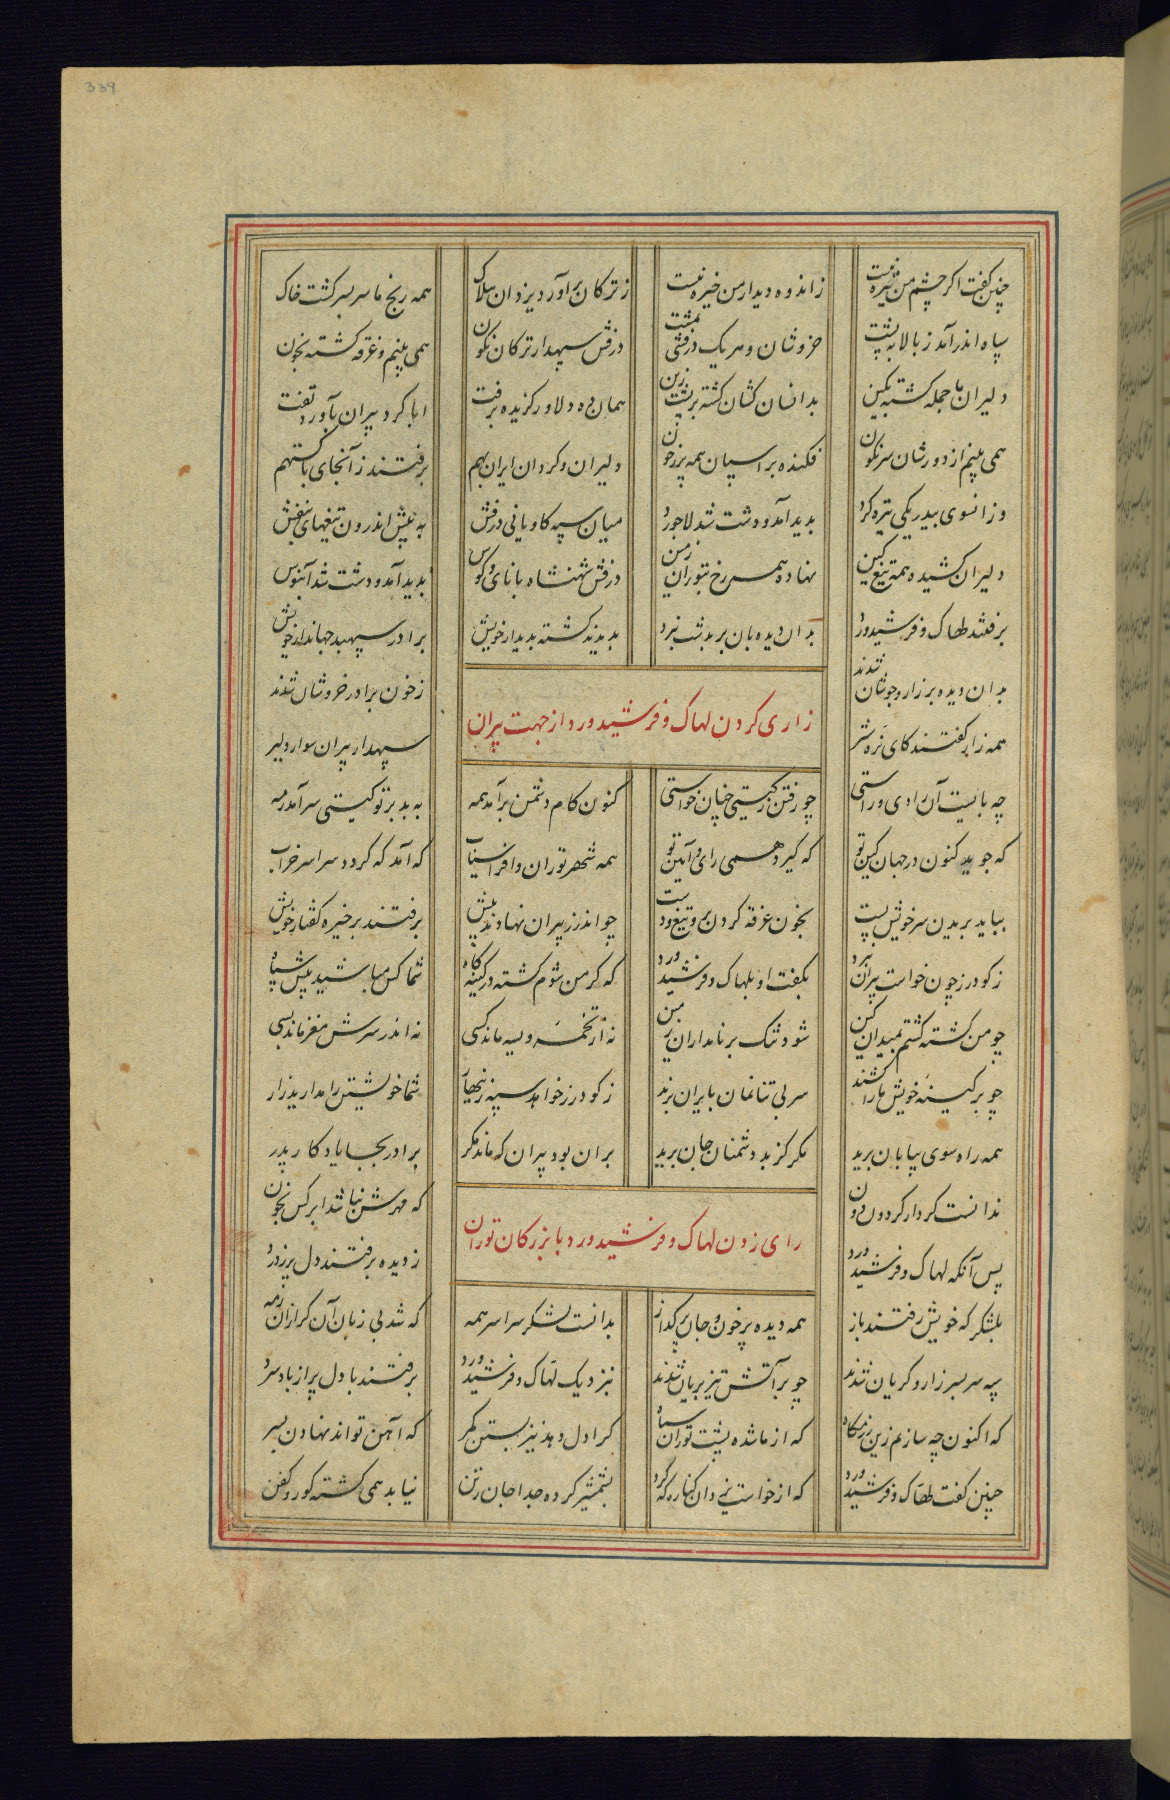 339
چنین گفت اگر چشم من تیره نیست
ز اندوه دیدار من خیره نیست
ز ترکان برآورد یزدان هلاک
همه رنج ما سر بسر گشت خاک
سپاه اندر آمد ز بالا به پشت
خروشان و هر یک درفشی بمشت
درفش سپهدار ترکان نگون
همی بینم و غرقه گشته بخون
دلیران ما جمله گشته بکین
بدانسان کشان کشته بر پشت زین
همان ده دلاور کزیده برفت
ابا کرد پیران بآورد تفت
همی بینم از دورشان سرنگون
فکنده بر اسپان همه پر ز خون
دلیران و کردان ایران بهم
برفتند ز آنجای با گستهم
وز آنسوی بیدر یکی تیره گرد
بدید آمد و دشت شد لاجورد
میان سپه کاویانی درفش
به پیش اندرون تیغهای بنفش
دلیران کشیده همه تیغ کین
نهاده همه سر رخ بتوران زمین
درفش شهنشاه با نای و کوس
بدید آمد و دشت شد آبنوس
برفتند لهاک و فرشیدورد
بدان دیده بان بر بدشت نبرد
بدیدند کشته بدیدار خویش
برادر سپهبد جهاندار خویش
بدان دیده بر زار و جوشان شدند
ز خون برادر خروشان شدند
زاری کردن لهاک و فرشیدورد از جهت پیران
همه زار گفتند کای نره شیر
سپهدار پیران سوار دلیر
چه بایست آن رادی و راستی
چو رفتن ز گیتی چنان خواستی
کنون کام دشمن برآمد همه
به بد بر تو گیتی سر آمد رمه
که جوید کنون در جهان کین تو
که گیرد همی رای و آیین تو
همه شهر توران و افراسیاب
که آمد که گردد سراسر خراب
بباید بریدن سر خویش پست
بخون غرقه کردن بر و تیغ و دست
چو اندرز پیران نهادند پیش
برفتند بر خیره گفتار خویش
ز گودرز چون خواست پیران نبرد
بگفت او بلهاک و فرشیدورد
که گر من شوم کشته در کینه گاه
شما کس مباشید پیش سپاه
چو من کشته گشتم بمیدان کین
شود تنگ بر نامداران زمین
نه از تخمه ویسه ماند کسی
نه اندر سرش مغز ماند بسی
چو بر کینه خویش ما را کشند
سر بی تنانمان بایران برند
ز گودرز خواهد سپه زنهار
شما خویشتن را مدارید زار
همه راه سوی بیابان برید
مگر کز بد دشمنان جان برید
بر ان بود پیران که ماند مگر
برادر بجا یادگار پدر
ندانست کردار گردون دون
که مهرش نباشد ابر کس بخون
رای زدن لهاک و فرشیدورد با بزرگان توران
پس آنگه لهاک و فرشیدورد
ز دیده برفتند دل پر ز درد
بلشکر که خویش رفتند باز
همه دیده پر خون و جان پر گداز
بدانست لشکر سراسر همه
که شد بی زبان آن گرازان رمه
سپه سر بسر زار و گریان شدند
چو بر آتش تیز بریان شدند
بنزدیک لهاک و فرشیدورد
برفتند با دل پر از باد سرد
که اکنون چه سازم زین رزمگاه
که از ما شده پشت توران سپاه
کرا دل دهد نیز بستن کمر
که آهن تواند نهادن بسر
چنین گفت لهاک و فرشیدورد
که از خواست یزدان کناره که کرد
بشمشیر کرده جدا جان ز تن
نیابد همی کشته گور و کفن